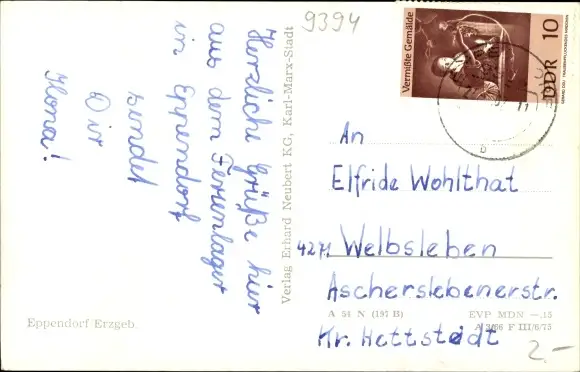 9394
Herzliche Grüße hier
aus dem Ferienlager
in Eppendorf
sendet
Dir
Ilona!
Eppendorf Erzgeb.
Verlag Erhard Neubert KG, Karl-Marx-Stadt
Vermißte Gemälde
10
DDR
An
Elfride Wohlthat
4271 Welbsleben
Ascherslebenerstr.
Kr. Hettstedt
A 54 N (197 B)
EVP MDN —.15
A 3/66 F III/6/75
2.-